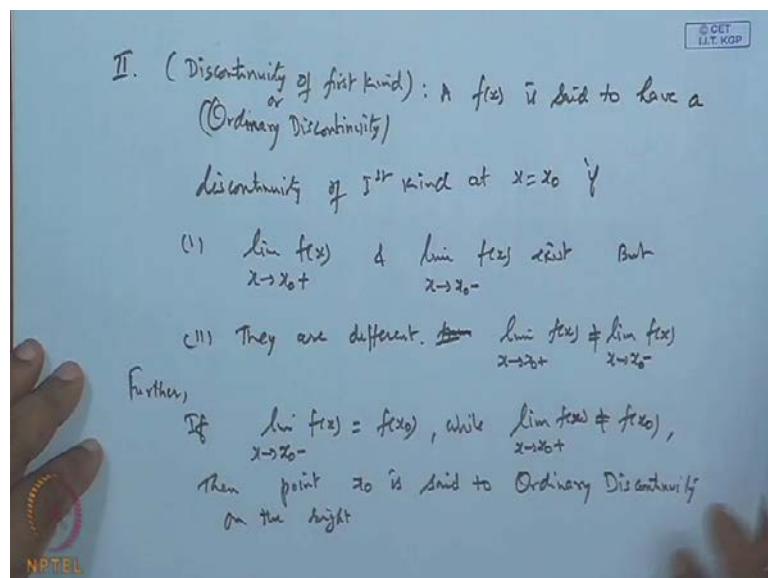 © CET
I.I.T. KGP
II. (Discontinuity of first kind) : A f(x) is said to have a
or
(Ordinary Discontinuity)
discontinuity of Ist kind at x=x₀ if
(i) lim f(x) & lim f(x) exist But
x→x₀+ x→x₀-
(ii) They are different. lim f(x) ≠ lim f(x)
x→x₀+ x→x₀-
Further,
If lim f(x) = f(x₀), while lim f(x) ≠ f(x₀),
x→x₀- x→x₀+
Then point x₀ is said to Ordinary Discontinuity
on the right
NPTEL